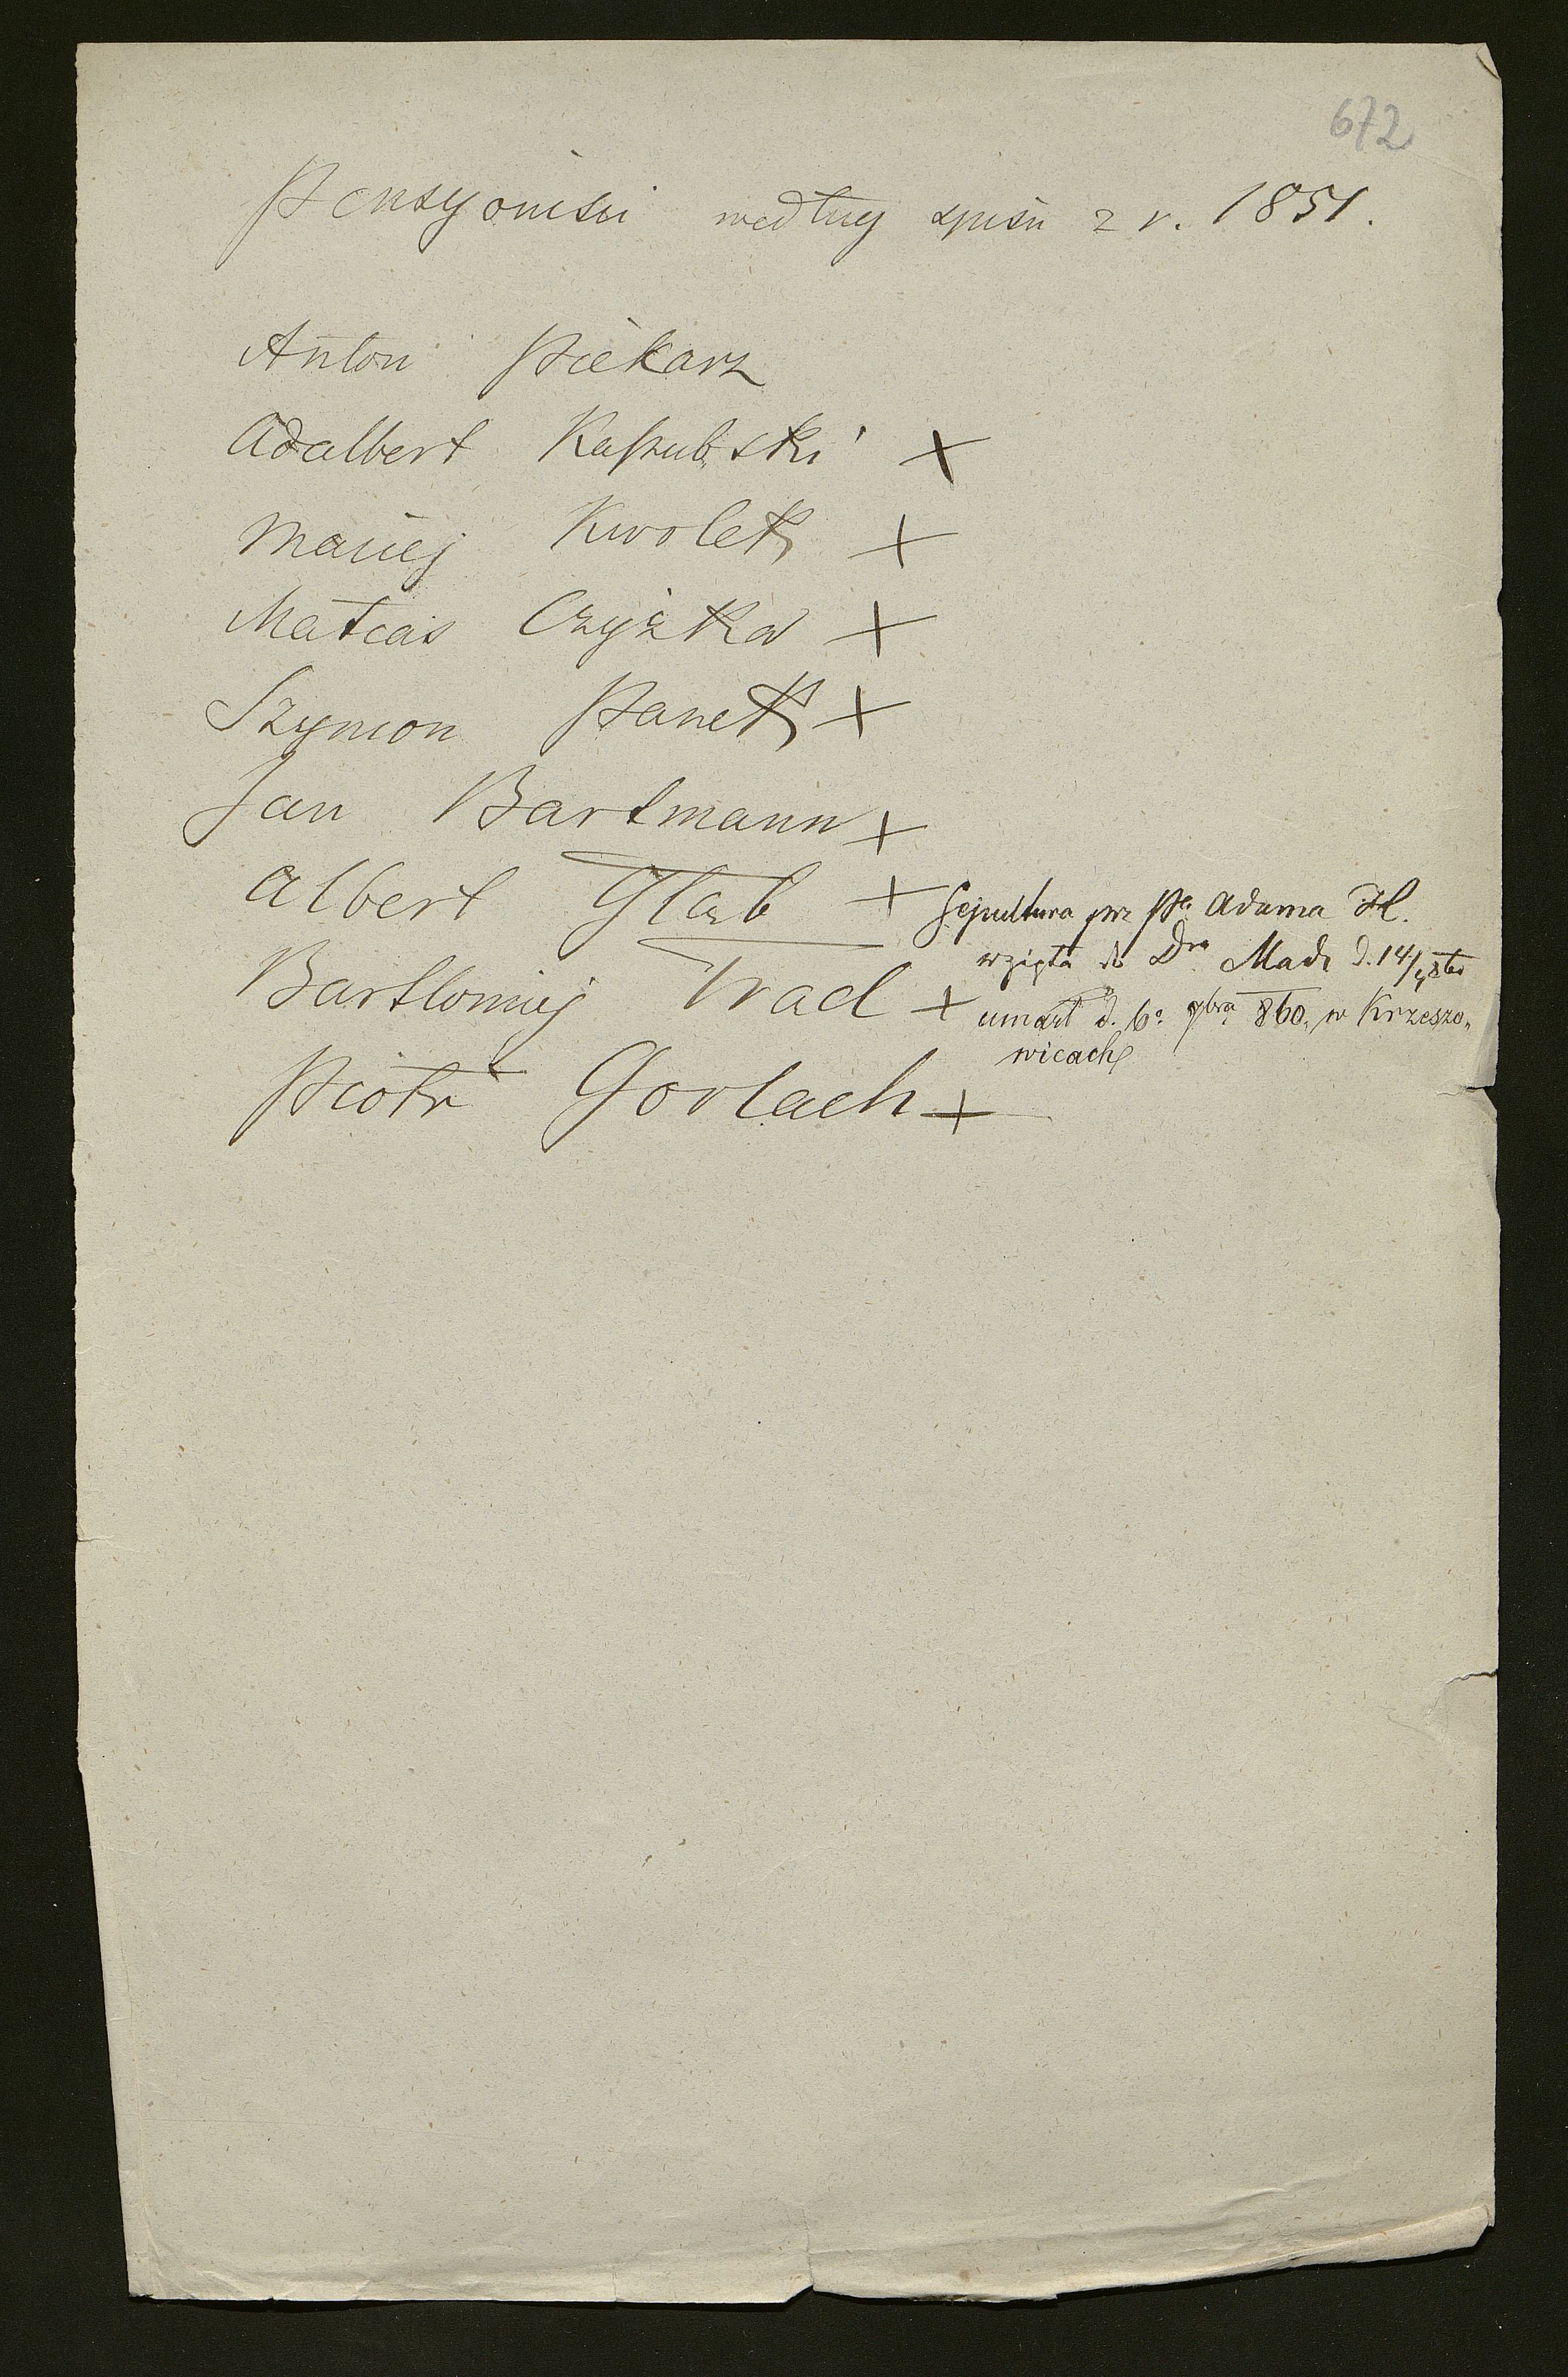 672
Pensyoniści według spisu z r. 1851.
Anton Piekarz
Adalbert Kaszubski +
Maciej Kwolek +
Matias Czyżka +
Szymon Panek +
Jan Bartmann +
Albert Głąb + Sepultura prz Pa Adama
wzięta do Dra d. 14/
Bartłomiej Trad + umarł d. 6o 9bra 860, w Krzeszo-
wicach
Piotr Gorlach +